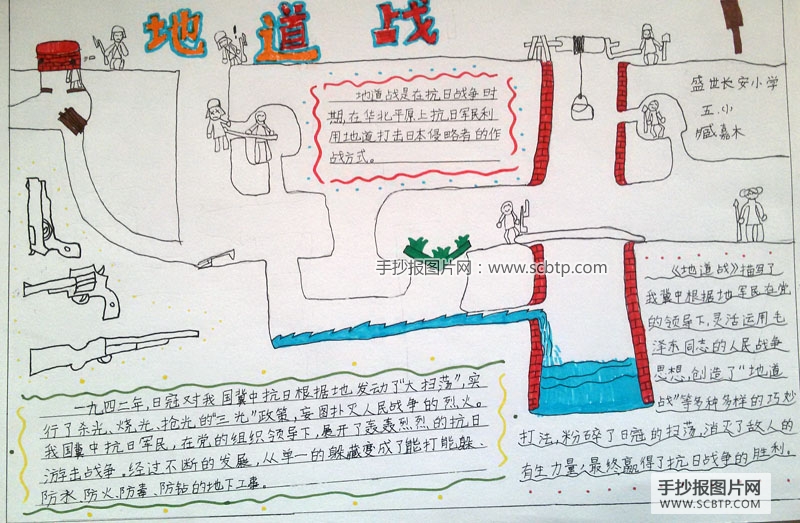 地道战
地道战是在抗日战争时
期,在华北平原上抗日军民利
用地道打击日本侵略者的作
战方式。
盛世长安小学
五.小
臧嘉木
手抄报图片网：www.scbtp.com
《地道战》描写了
我冀中根据地军民在党
的领导下,灵活运用毛
泽东同志的人民战争
思想,创造了“地道
战”等多种多样的巧妙
打法,粉碎了日寇的扫荡,消灭了敌人的
有生力量,最终赢得了抗日战争的胜利。
一九四二年,日寇对我国冀中抗日根据地发动了“大扫荡”,实
行了杀光、烧光、抢光的“三光”政策,妄图扑灭人民战争的烈火。
我国冀中抗日军民,在党的组织领导下,展开了轰轰烈烈的抗日
游击战争。经过不断的发展,从单一的躲藏变成了能打能躲、
防水、防火、防毒、防钻的地下工事。
手抄报图片网
SCBTP.COM